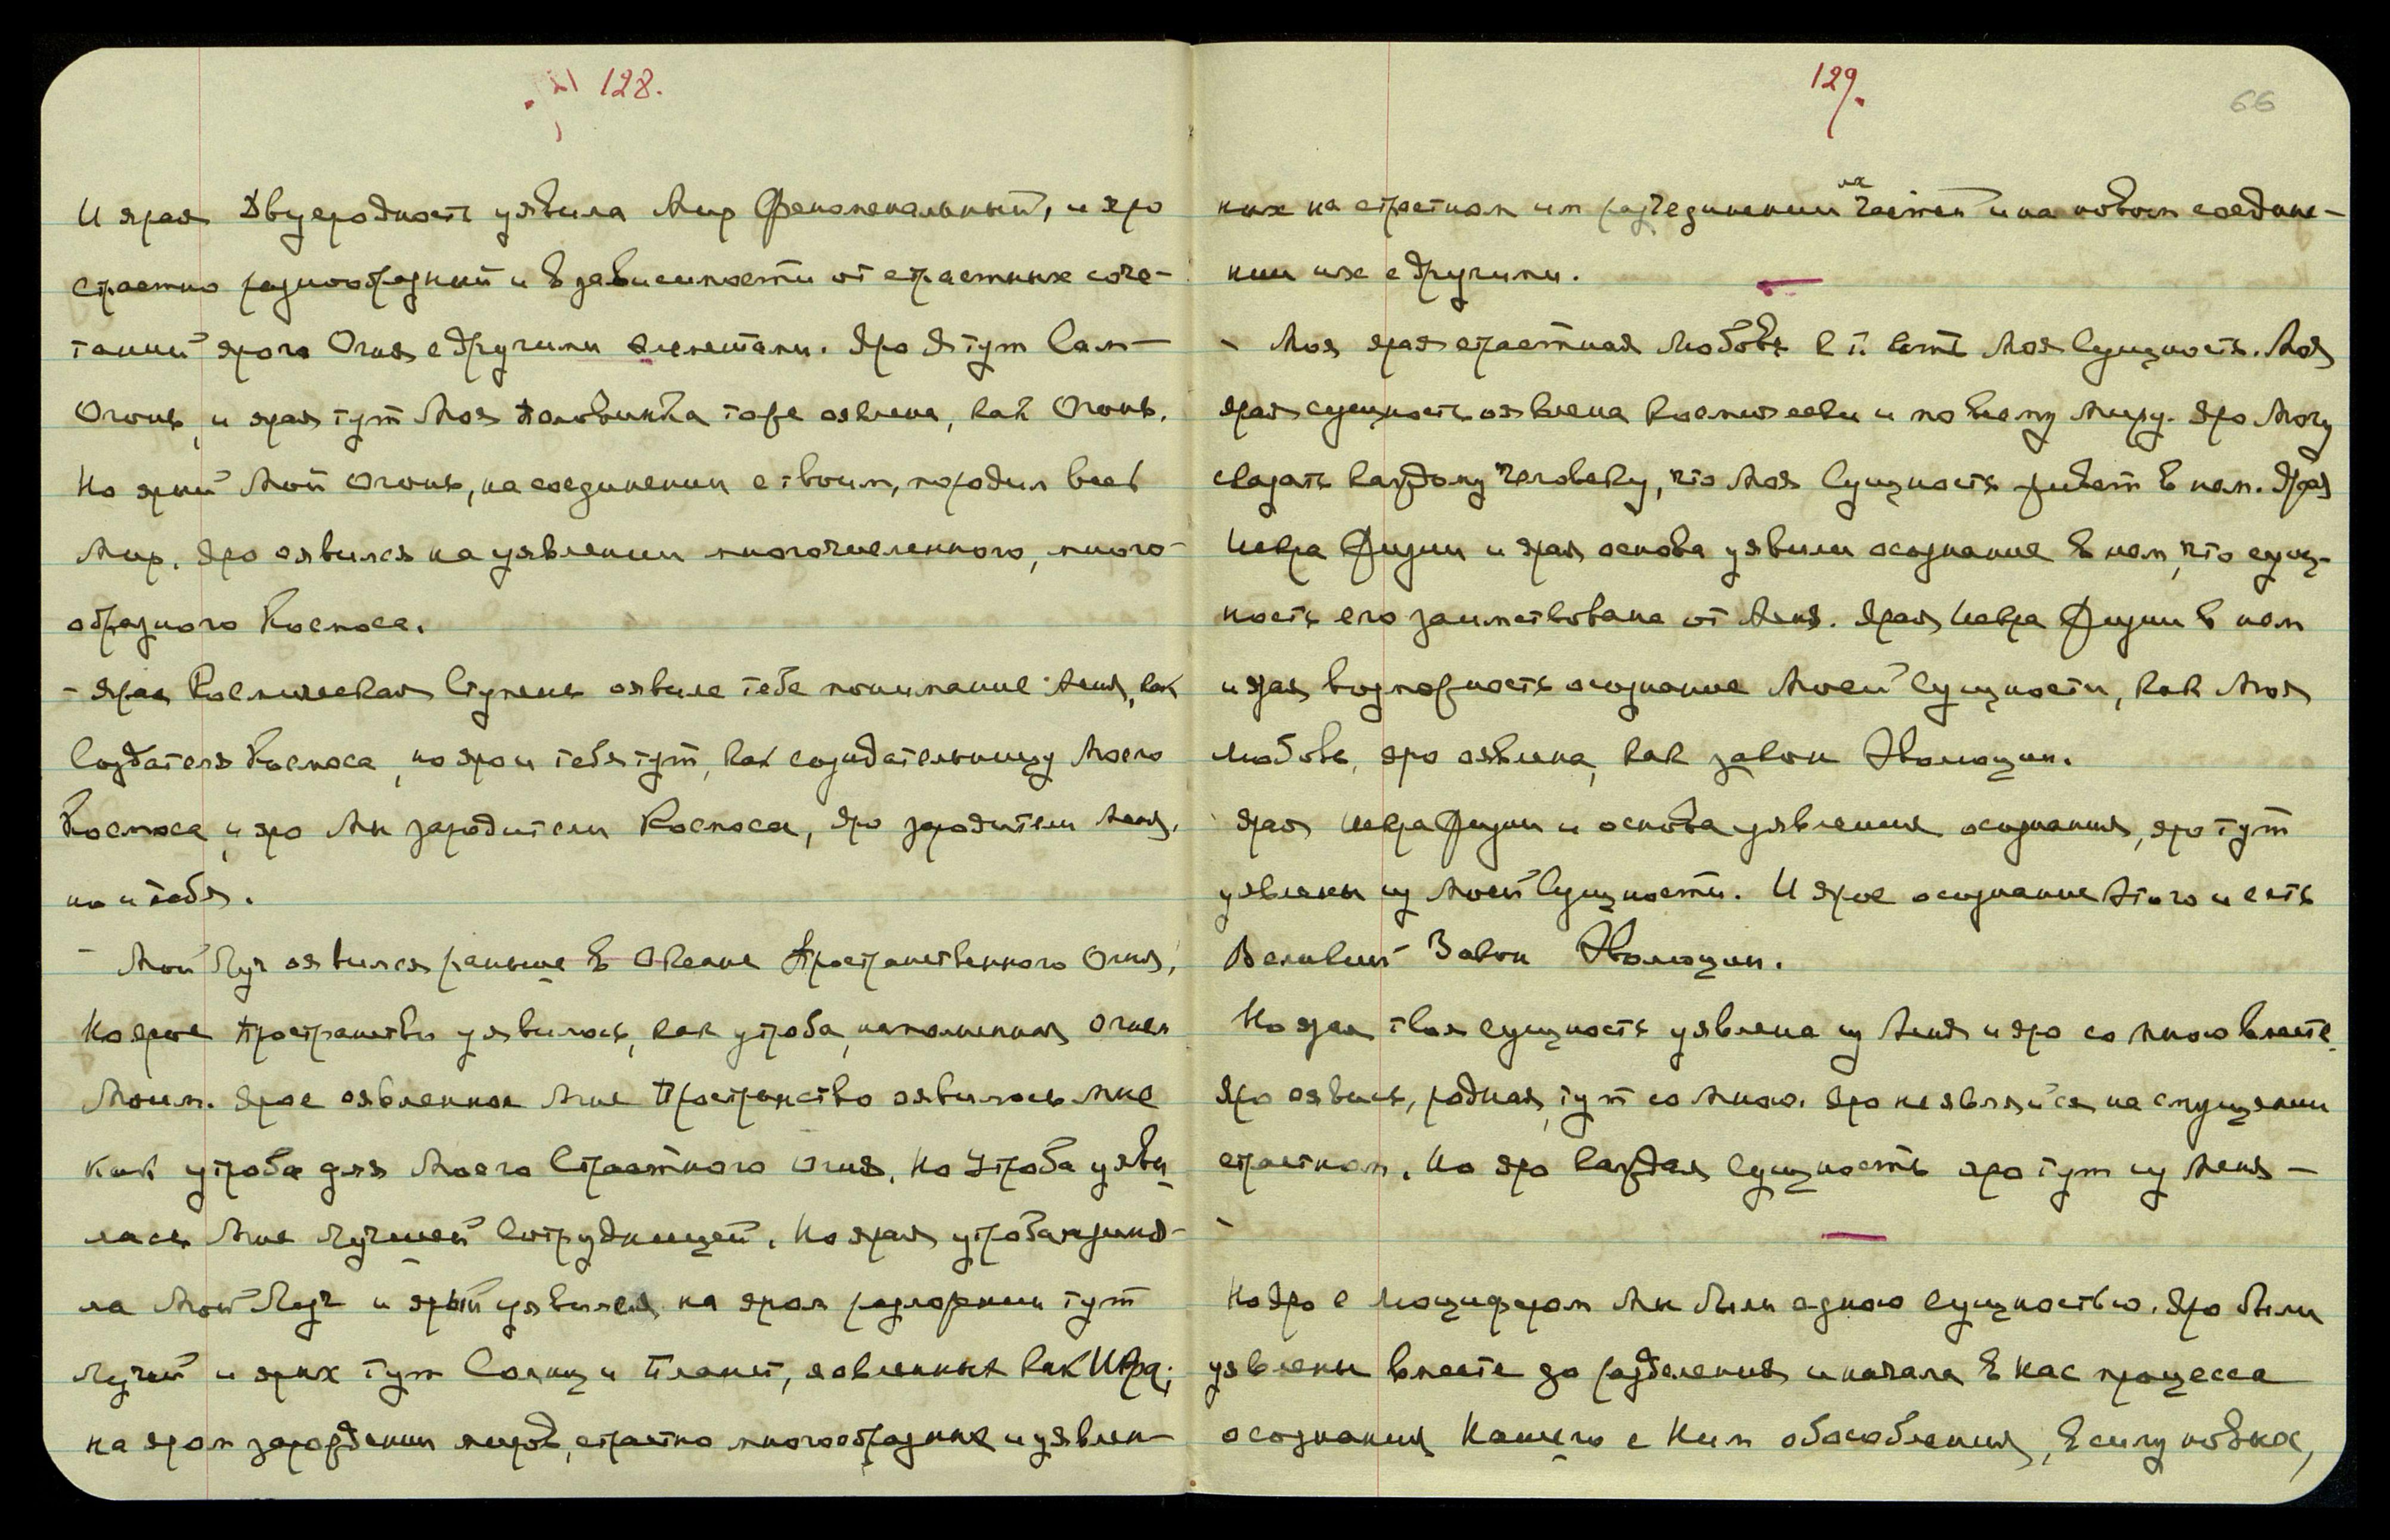 128.
И ярая Двуеродность уявила Мир Феноменальный, и яро
страстно разнообразный и в зависимости от страстных соче-
таний ярого Огня с другими элементами. Яро Я тут Сам —
Огонь, и ярая тут Моя Половинка тоже оявлена, как Огонь.
Но ярый Мой огонь, на соединении с твоим, породил весь
Мир. Яро оявился на уявлении многочисленного, много-
образного Космоса.
- Ярая Космическая Ступень оявила тебе понимание Меня, как
Создателя Космоса, но яро и тебя тут, как создательницу Моего
Космоса, и яро Мы зародители Космоса, яро зародители Меня,
но и тебя.
- Мой Луч оявился раньше в Океане Пространственного Огня,
Но ярое Пространство уявилось, как утроба, наполненная огнем
Моим. Ярое оявленное Мне Пространство оявилось мне
как утроба для Моего Страстного огня. Но Утроба уяви-
лась Мне лучшей Сотрудницей. Но ярая утроба приня-
ла Мой Луч и ярый уявился на яром разложении тут
Лучей и ярых тут Солнц и Планет, явленных как Игра;
на яром зарождении миров, страстно многообразных и уявлен-
129.
66
ных на страстном им разъединении их частей и на новом соедине-
нии их с другими.
- Моя ярая страстная Любовь к т. есть Моя Сущность. Моя
ярая сущность оявлена космически и по всему миру. Яро Могу
сказать каждому человеку, что Моя Сущность живет в нем. Ярая
Искра Физии и ярая основа уявили осознание в нем, что сущ-
ность его заимствована от Меня. Ярая Искра Физии в нем
и ярая возможность осознание Моей Сущности, как Моя
любовь, яро оявлена, как закон Эволюции.
Ярая Искра Физии и основа уявления осознания, яро тут
уявлены из Моей Сущности. И ярое осознание Этого и есть
Великий Закон Эволюции.
Но ярая твоя сущность уявлена из Меня и яро со мною вместе.
Яро оявись, родная, тут со Мною. Яро не являйся на смущении
страстном. Но яро каждая Сущность яро тут из Меня —
Но яро с Люцифером Мы были одною сущностью. Яро были
уявлены вместе до разделения и начала в нас процесса
осознания Нашего с Ним обособления, в силу новых,